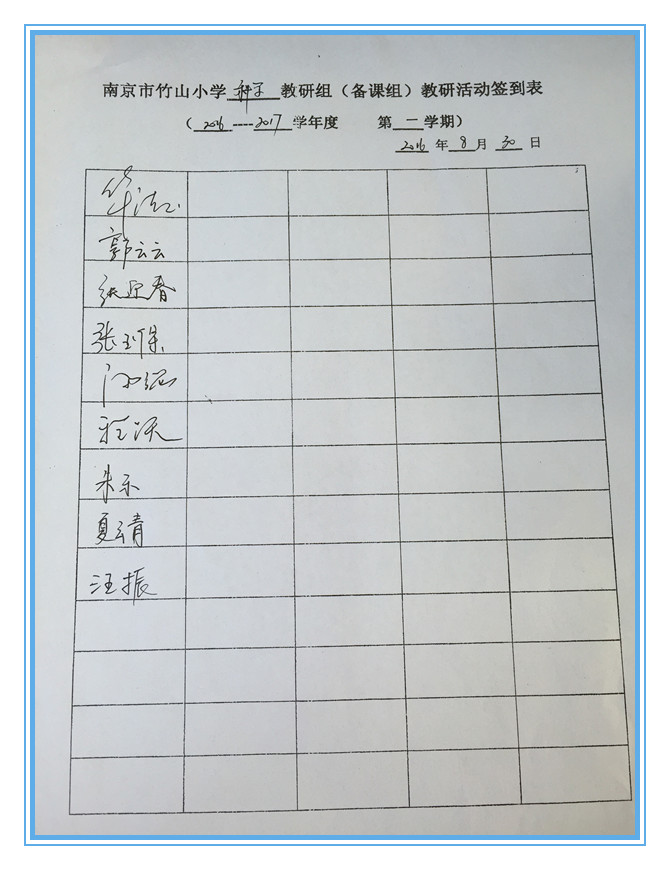 南京市竹山小学 教研组（备课组）教研活动签到表
（2016----2017学年度 第一学期）
2016年8月30日
郭云云
张迎春
张玉保
程沃
朱乐
夏云青
汪振